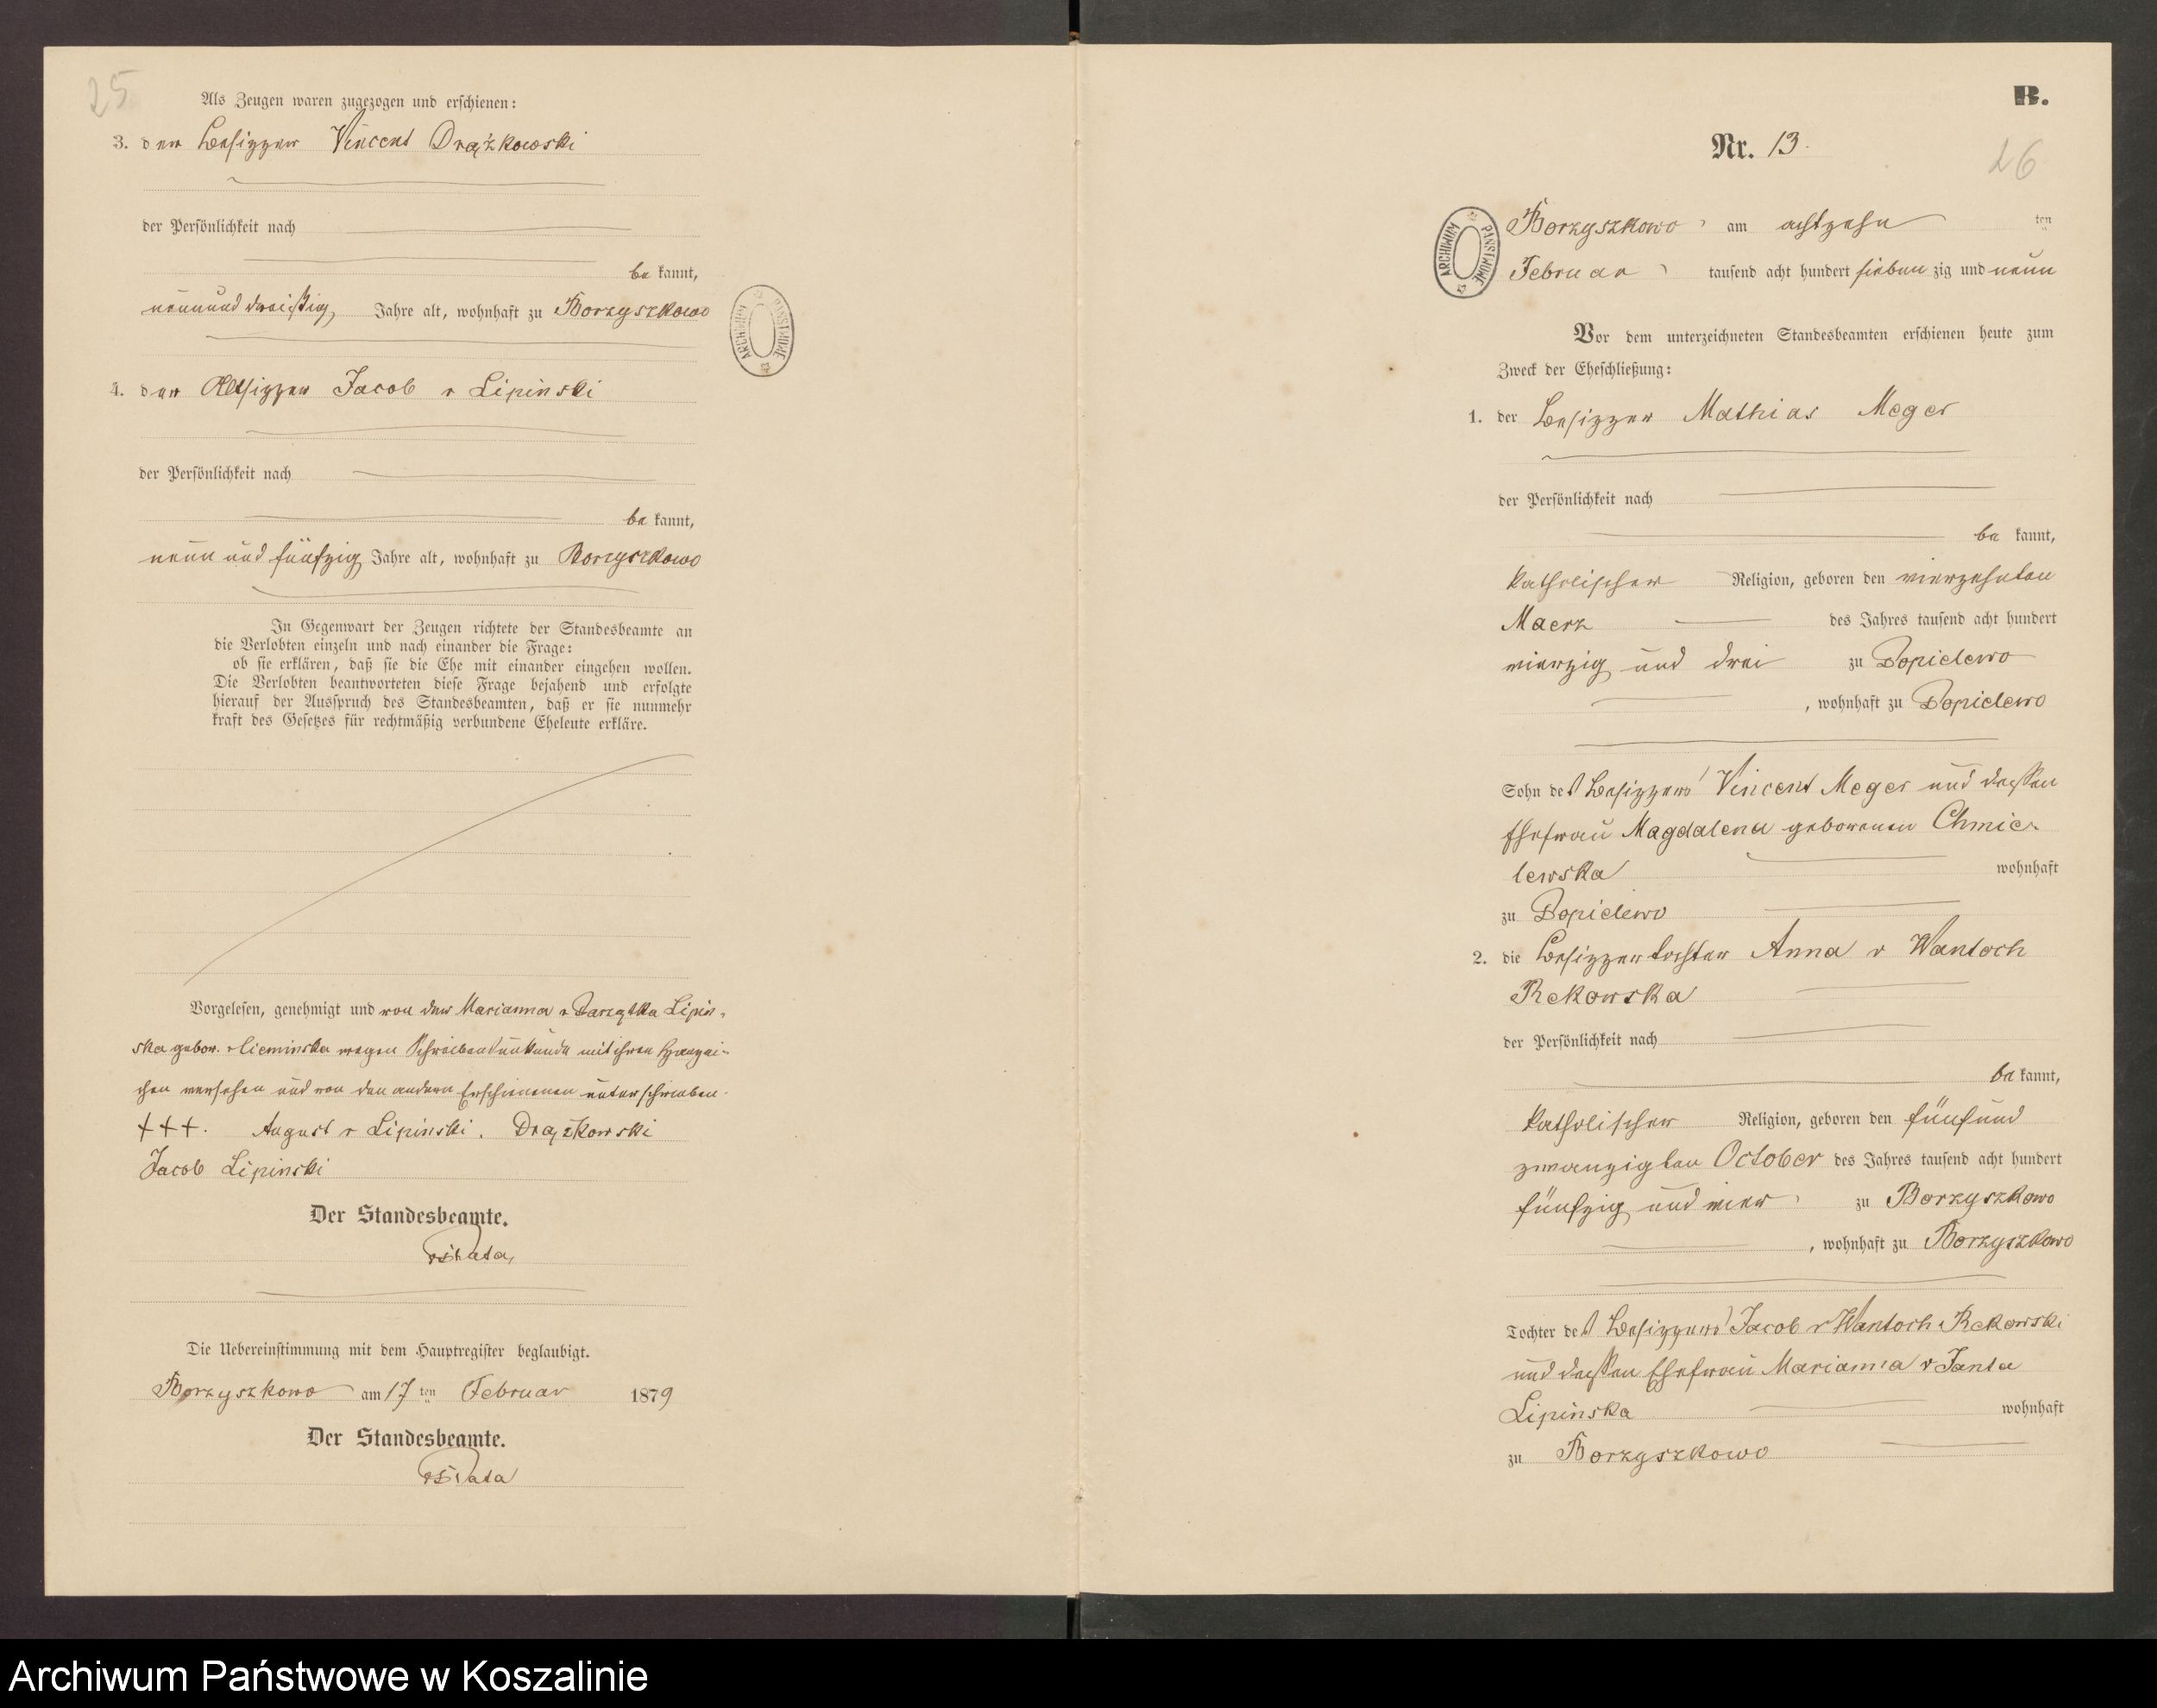 25
Als Zeugen waren zugezogen und erschienen:
3. der Besitzer Vincent Drążkowski
der Persönlichkeit nach
be kannt,
neunund dreißig, Jahre alt, wohnhaft zu Borzyszkowo
4. der Altsitzer Jacob v Lipinski
der Persönlichkeit nach
be kannt,
neun und fünfzig Jahre alt, wohnhaft zu Borzyszkowo
In Gegenwart der Zeugen richtete der Standesbeamte an
die Verlobten einzeln und nach einander die Frage:
ob sie erklären, daß sie die Ehe mit einander eingehen wollen.
Die Verlobten beantworteten diese Frage bejahend und erfolgte
hierauf der Ausspruch des Standesbeamten, daß er sie nunmehr
kraft des Gesetzes für rechtmäßig verbundene Eheleute erkläre.
Vorgelesen, genehmigt und von der Marianna v Lipin-
ska gebor. v Cieminska wegen Schreibensunkunde mit ihren Handzei-
chen versehen und von den andern Erschienenen unterschrieben.
+++. August v Lipinski. Drążkowski
Jacob Lipinski
Der Standesbeamte.
Die Uebereinstimmung mit dem Hauptregister beglaubigt.
Borzyszkowo am 17 ten Februar 1879
Der Standesbeamte.
ARCHIWUM PAŃSTWOWE
B.
Nr. 13.
26
Borzyszkowo am achtzehn ten
Februar tausend acht hundert sieben zig und neun
Vor dem unterzeichneten Standesbeamten erschienen heute zum
Zweck der Eheschließung:
1. der Besitzer Mathias Meger
der Persönlichkeit nach
be kannt,
katholischer Religion, geboren den vierzehnten
Maerz des Jahres tausend acht hundert
vierzig und drei zu Dopielewo
, wohnhaft zu Dopielewo
Sohn des Besitzers Vincent Meger und dessen
Ehefrau Magdalena geborenen Chmie-
lewska wohnhaft
zu Dopielewo
2. die Besitzertochter Anna v Wantoch
Rekowska
der Persönlichkeit nach
be kannt,
katholischer Religion, geboren den fünfund
zwanzigten October des Jahres tausend acht hundert
fünfzig und vier zu Borzyszkowo
, wohnhaft zu Borzyszkowo
Tochter des Besitzers Jacob v Wantoch Rekowski
und dessen Ehefrau Marianna v Janta
Lipinska wohnhaft
zu Borzyszkowo
ARCHIWUM PAŃSTWOWE
Archiwum Państwowe w Koszalinie